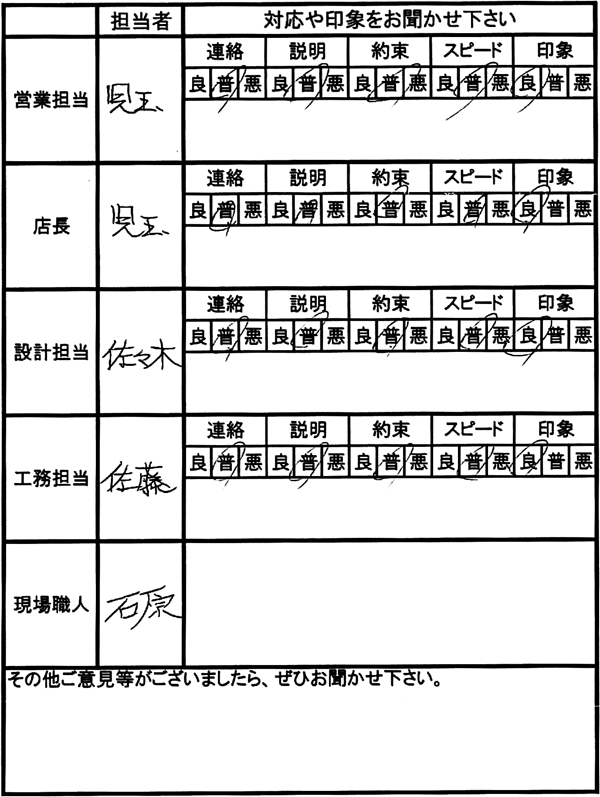 担当者 対応や印象をお聞かせ下さい
営業担当 児玉
連絡 説明 約束 スピード 印象
良 普 悪 良 普 悪 良 普 悪 良 普 悪 良 普 悪
店長 児玉
連絡 説明 約束 スピード 印象
良 普 悪 良 普 悪 良 普 悪 良 普 悪 良 普 悪
設計担当 佐々木
連絡 説明 約束 スピード 印象
良 普 悪 良 普 悪 良 普 悪 良 普 悪 良 普 悪
工務担当 佐藤
連絡 説明 約束 スピード 印象
良 普 悪 良 普 悪 良 普 悪 良 普 悪 良 普 悪
現場職人 石原
その他ご意見等がございましたら、ぜひお聞かせ下さい。